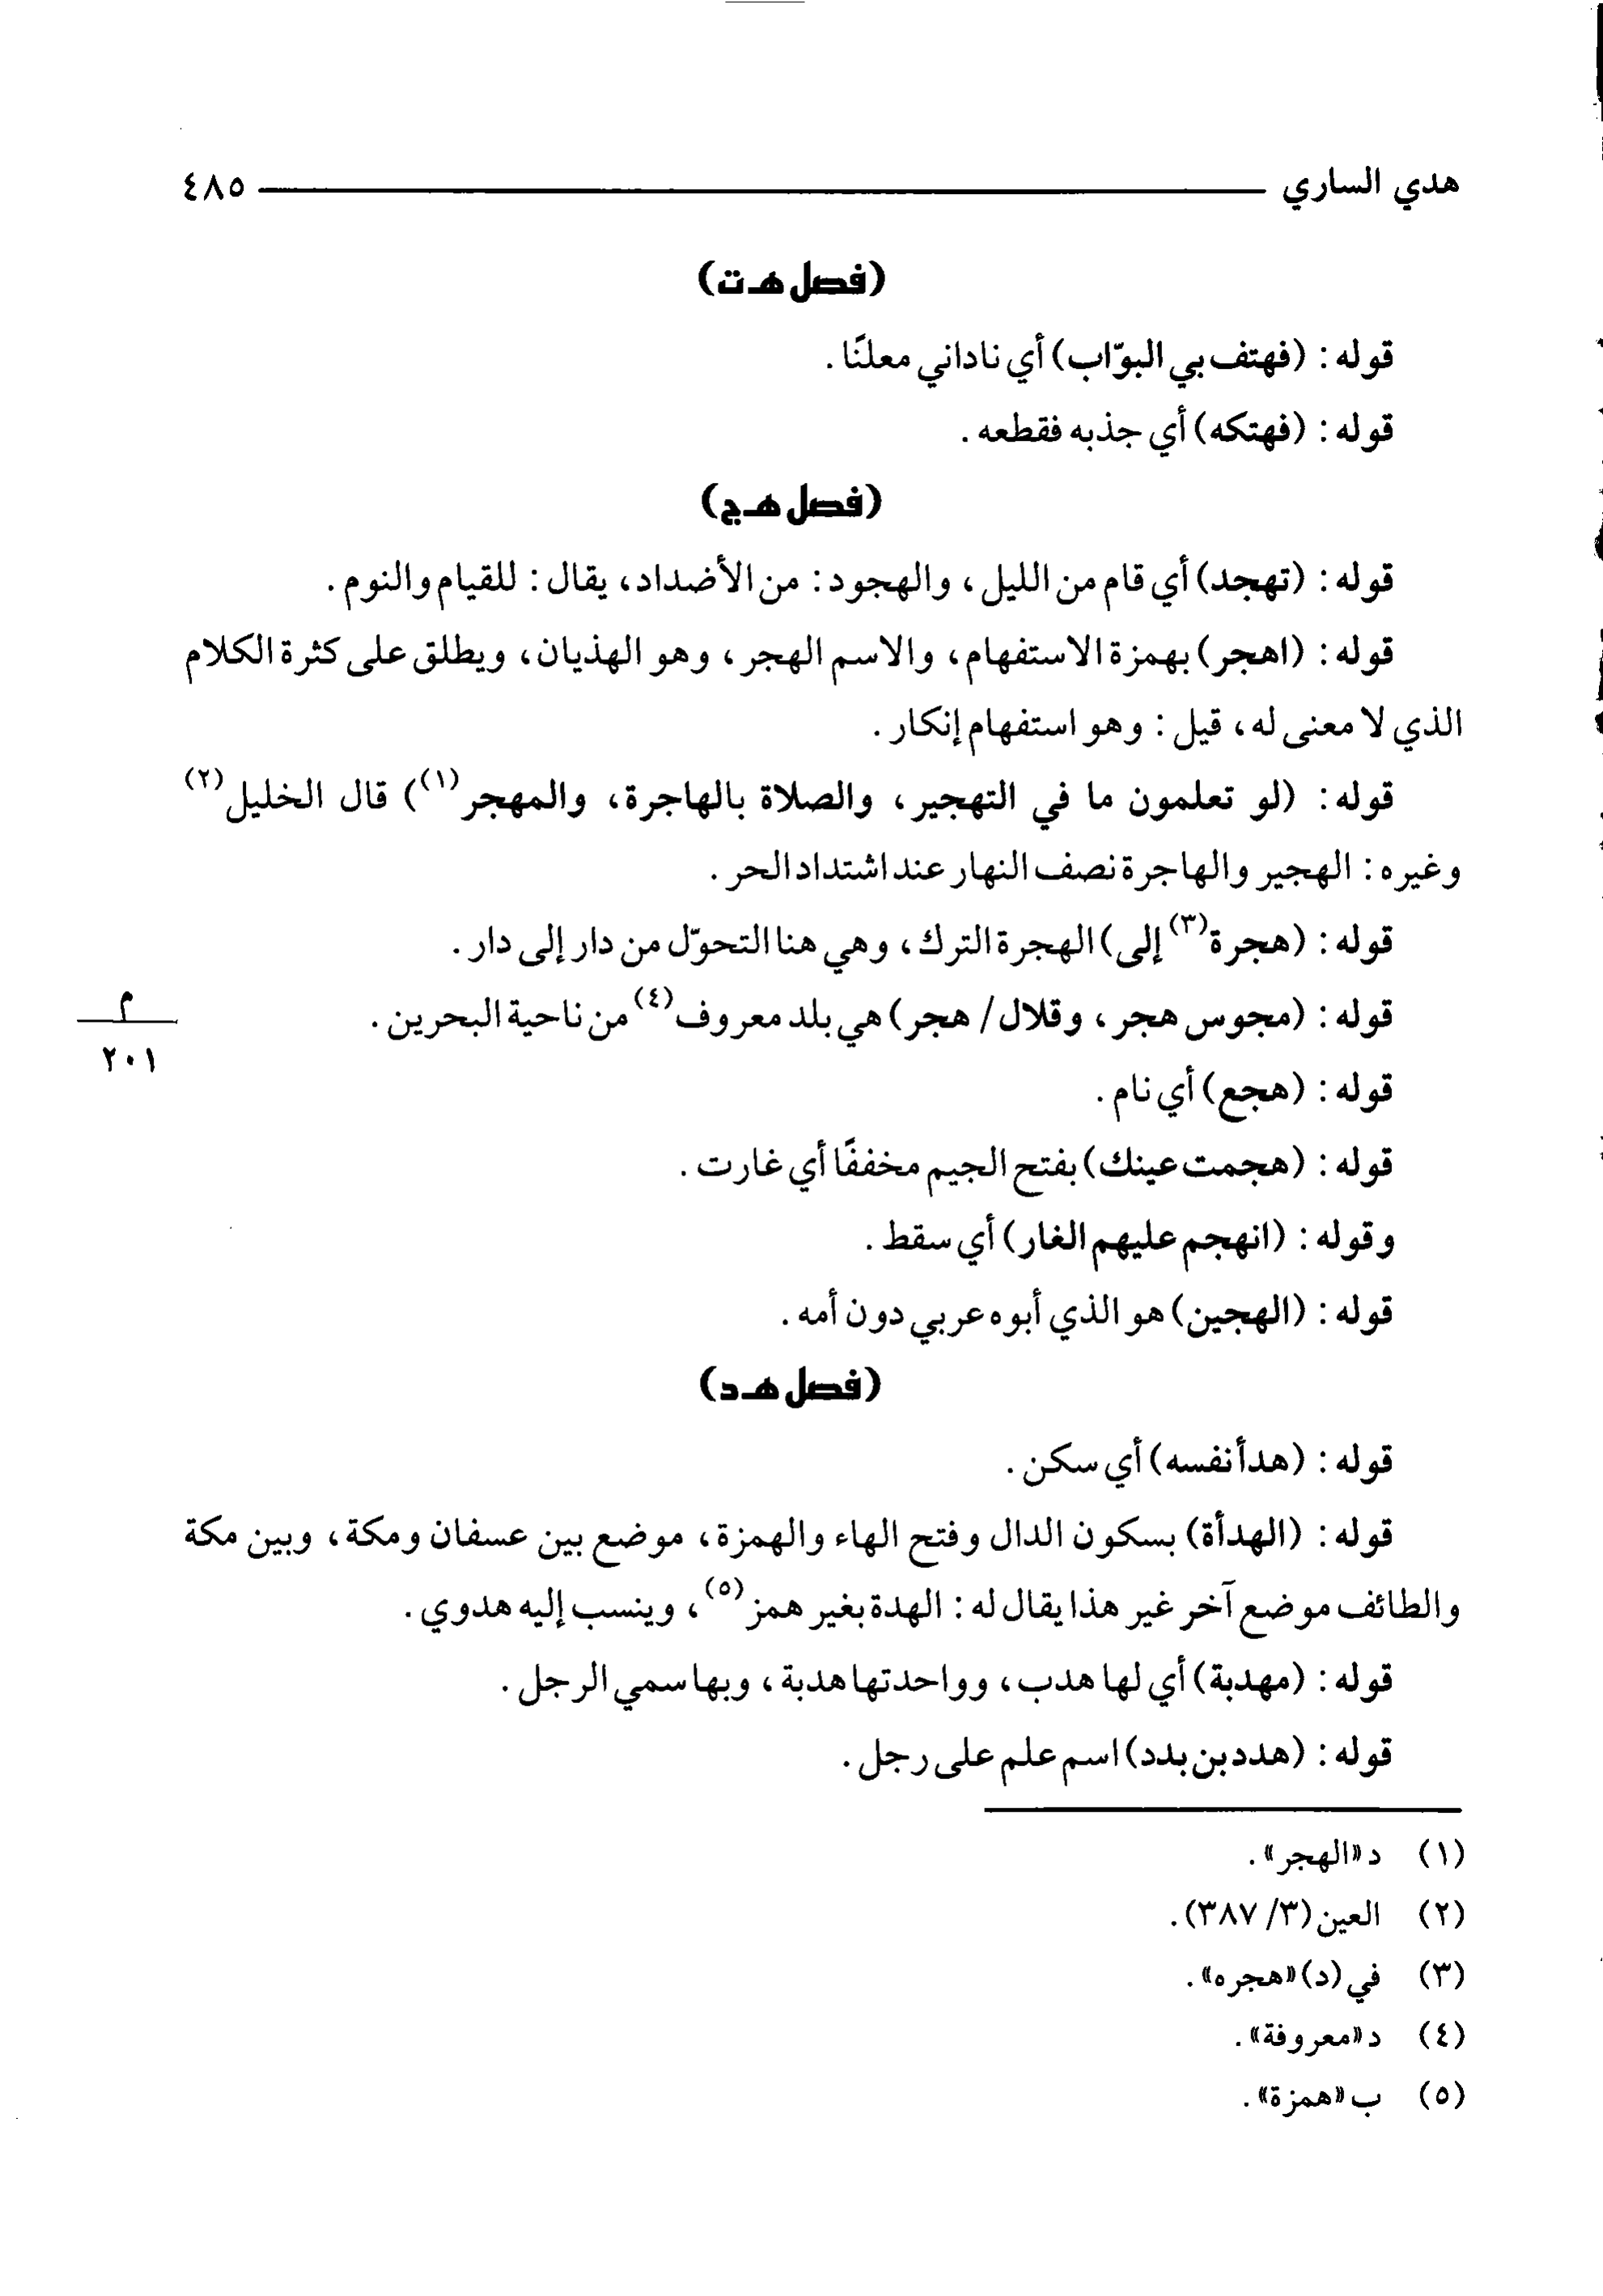 هدي الساري ٤٨٥
(فصل هـ ت)
قوله: (فهتف بي البوّاب) أي ناداني معلنًا.
قوله: (فهتكه) أي جذبه فقطعه.
(فصل هـ ج)
قوله: (تهجد) أي قام من الليل، والهجود: من الأضداد، يقال: للقيام والنوم.
قوله: (اهجر) بهمزة الاستفهام، والاسم الهجر، وهو الهذيان، ويطلق على كثرة الكلام
الذي لا معنى له، قيل: وهو استفهام إنكار.
قوله: (لو تعلمون ما في التهجير، والصلاة بالهاجرة، والمهجر(١)) قال الخليل(٢)
وغيره: الهجير والهاجرة نصف النهار عند اشتداد الحر.
قوله: (هجرة(٣) إلى) الهجرة الترك، وهي هنا التحوّل من دار إلى دار.
قوله: (مجوس هجر، وقلال/ هجر) هي بلد معروف(٤) من ناحية البحرين.
م
٢٠١
قوله: (هجع) أي نام.
قوله: (هجمت عينك) بفتح الجيم مخففًا أي غارت.
وقوله: (انهجم عليهم الغار) أي سقط.
قوله: (الهجين) هو الذي أبوه عربي دون أمه.
(فصل هـ د)
قوله: (هدأ نفسه) أي سكن.
قوله: (الهدأة) بسكون الدال وفتح الهاء والهمزة، موضع بين عسفان ومكة، وبين مكة
والطائف موضع آخر غير هذا يقال له: الهدة بغير همز(٥)، وينسب إليه هدوي.
قوله: (مهدبة) أي لها هدب، وواحدتها هدبة، وبها سمي الرجل.
قوله: (هدد بن بدد) اسم علم على رجل.
(١) د «الهجر».
(٢) العين (٣/ ٣٨٧).
(٣) في (د) «هجره».
(٤) د «معروفة».
(٥) ب «همزة».